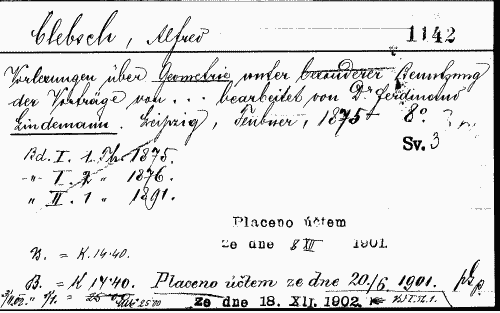 Clebsch, Alfred 1142
Vorlesungen über Geometrie unter besonderer Benutzung
der Vorträge von . . . bearbeitet von Dr. Ferdinand
Lindemann. Leipzig, Teubner, 1875 8°.
Sv. 3
Bd. I. 1. Th. 1875.
-„- I. 2 „ 1876.
„ II. 1 „ 1891.
Placeno účtem
ze dne 8 XII 1901.
B. = K 14·40.
B. = K 17·40. Placeno účtem ze dne 20./6. 1901.
ze dne 18. XII. 1902.